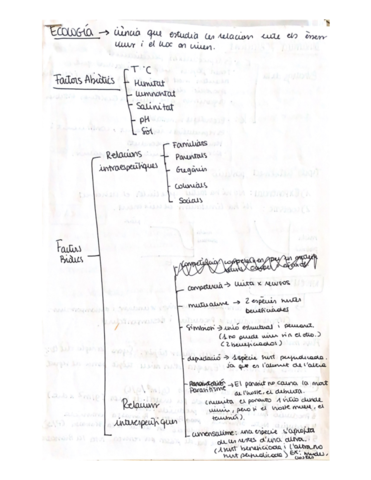 ECOLOGÍA → ciència que estudia les relacions entre els éssers
vius i el lloc on viuen.
Factors Abiòtics
T °C
Humitat
Lluminositat
Salinitat
pH
Sòl
Factors
Biòtics
Relacions
intraespecífiques
Familiars
Parentals
Gregàries
Colonials
Socials
Relacions
interespecífiques
competència → lluita x recursos
mutualisme → 2 espècies surten
beneficiades
Simbiosi → unió estructural i permanent.
(1 no puede vivir sin el otro)
(2 beneficiados)
depredació → 1 espècie surt perjudicada
ja que es l'aliment de l'altra
Parasitisme → El paràsit no causa la mort
de l'hoste, el debilita.
viure, però si el hoste mor, el
comensalisme: una espècie s'aprofita
de les restes d'una altra.
(1 surt beneficiada i l'altra no
surt perjudicada)